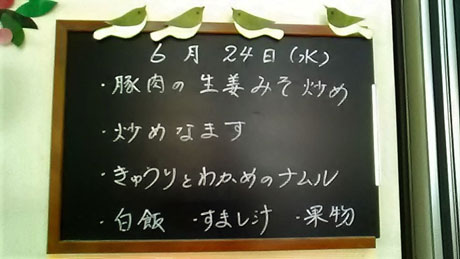 6月24日(水)
・豚肉の生姜みそ炒め
・炒めなます
・きゅうりとわかめのナムル
・白飯 ・すまし汁 ・果物